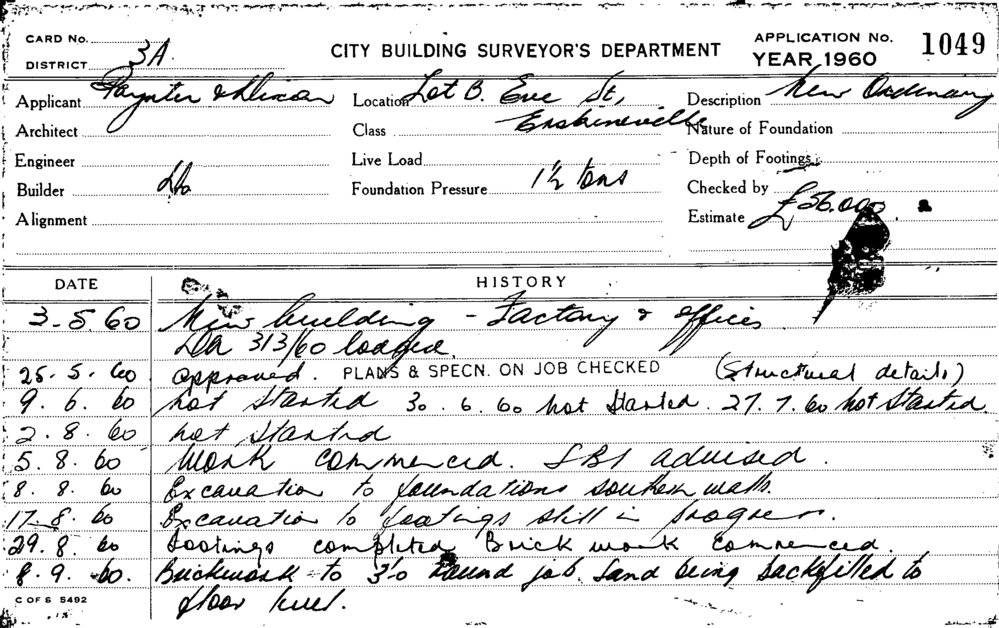 CARD No.
DISTRICT 3A
CITY BUILDING SURVEYOR'S DEPARTMENT
APPLICATION No. 1049
YEAR 1960
Applicant Paynter & Dixon
Location Lot B. Eve St,
Erskineville
Description New Ordinary
Architect
Class
Nature of Foundation
Engineer
Live Load
Depth of Footings
Builder Do
Foundation Pressure 1½ tons
Checked by
Alignment
Estimate £56,000
DATE HISTORY
3-5 60 New building - Factory & offices.
DA 313/60 lodged.
25. 5. 60 approved. PLANS & SPECN. ON JOB CHECKED (Structural details)
9. 6. 60 not started 30. 6. 60 not started. 27. 7. 60 not started
2. 8. 60 not started
5. 8. 60 Work commenced. SBI advised.
8. 8. 60 Excavation to foundations southern walls.
17. 8. 60 Excavation to footings still in progress.
29. 8. 60 Footings completed Brick work commenced.
8. 9. 60. Brickwork to 3'0 round job. Sand being backfilled to
floor level.
C OF S 5492